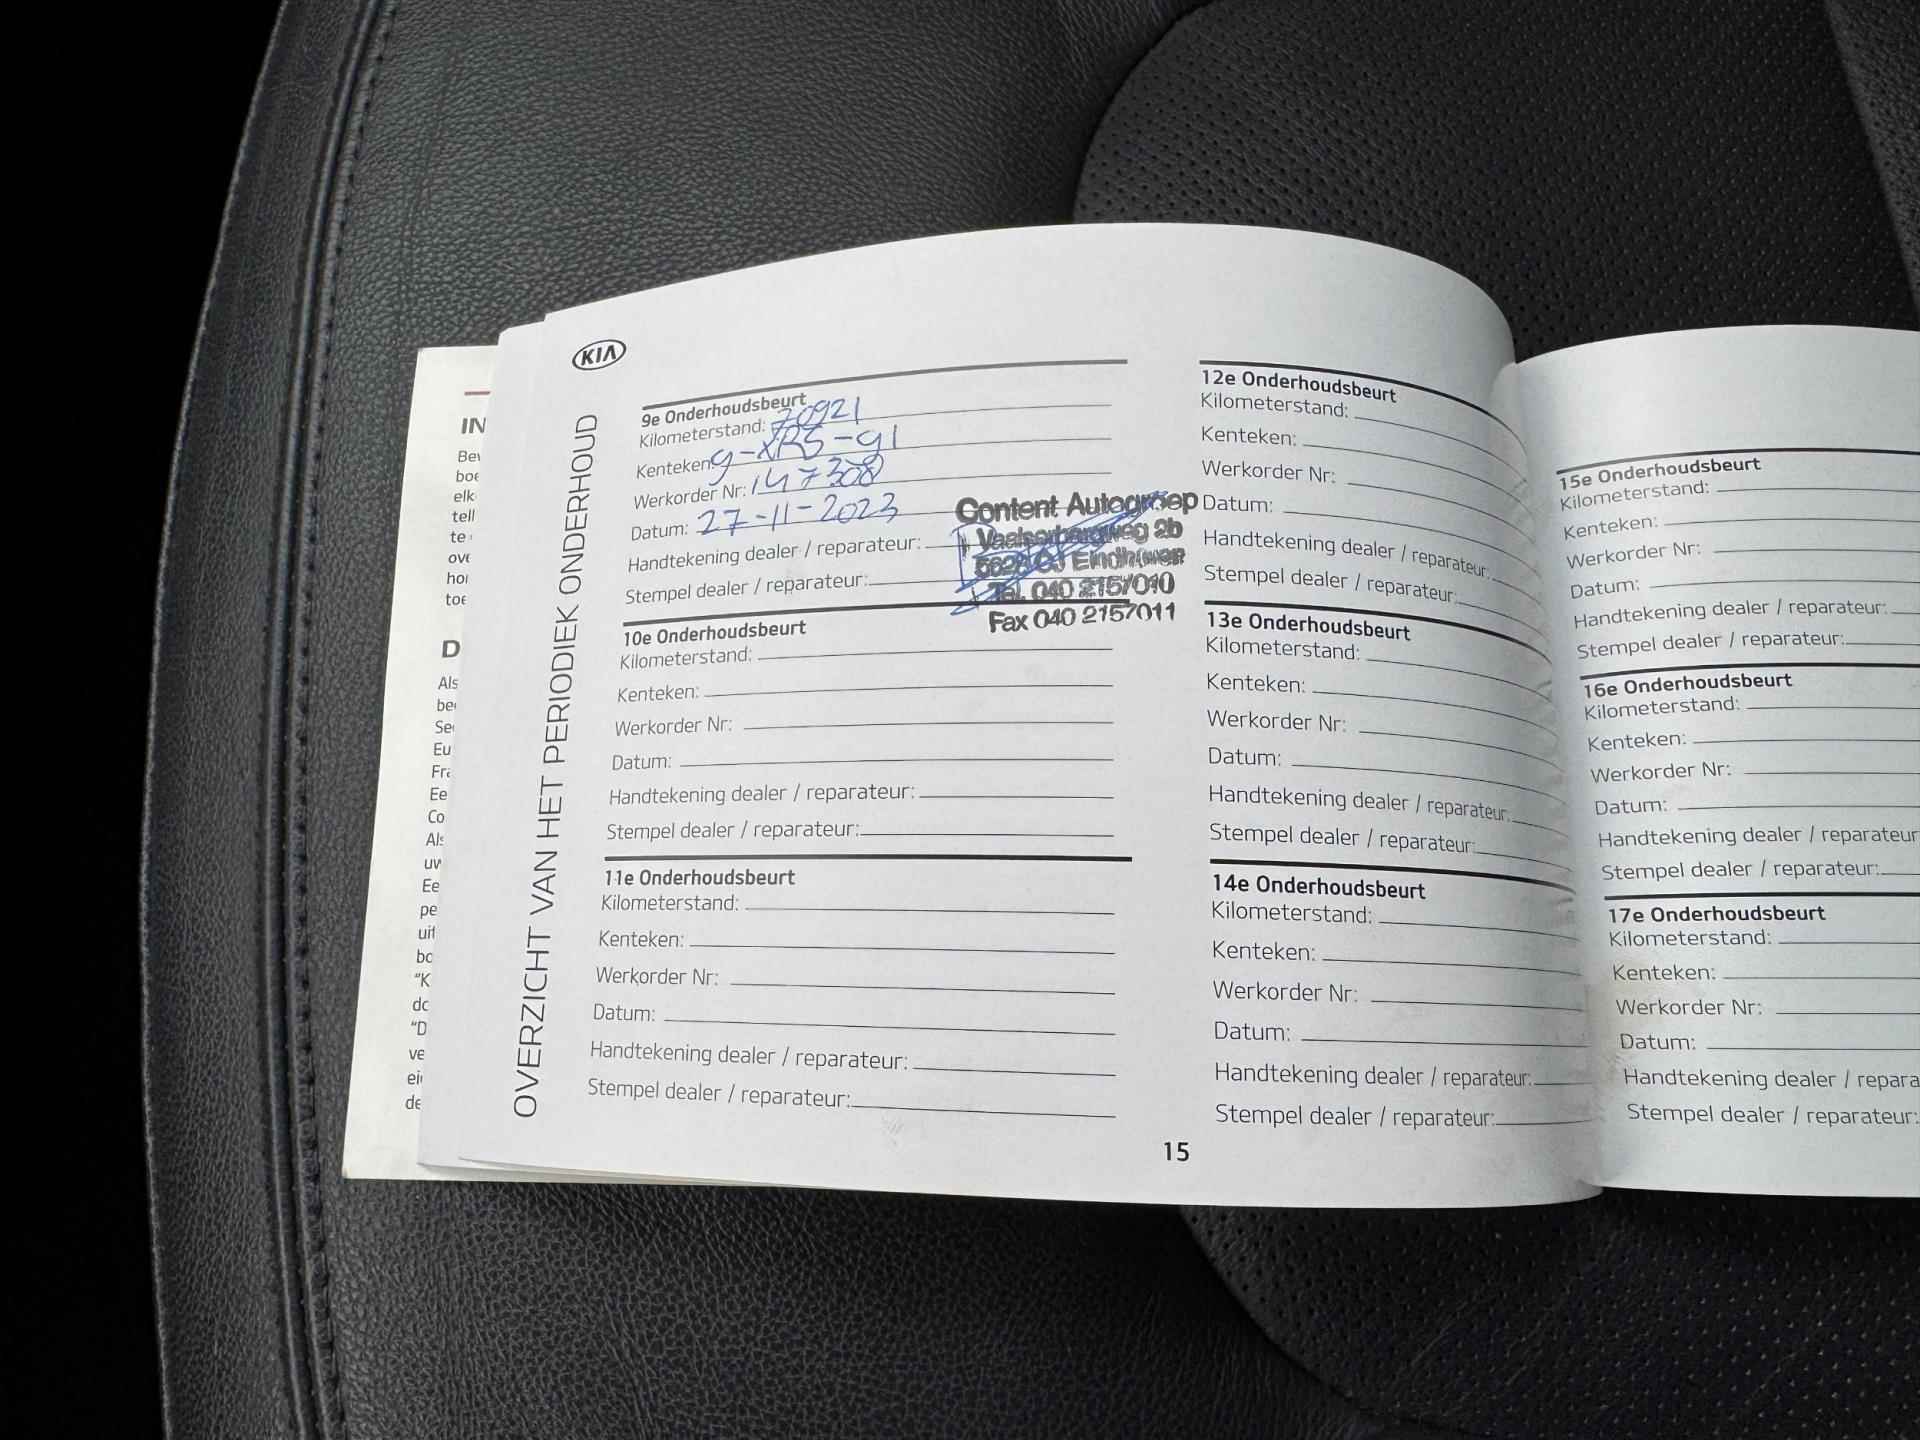 KIA
OVERZICHT VAN HET PERIODIEK ONDERHOUD
9e Onderhoudsbeurt
Kilometerstand: 70921
Kenteken: g-XRS-g1
Werkorder Nr: 147308
Datum: 27-11-2023
Handtekening dealer / reparateur:
Stempel dealer / reparateur:
Content Autogroep
2b
Eindhoven
Tel. 040 2157010
Fax 040 2157011
10e Onderhoudsbeurt
Kilometerstand:
Kenteken:
Werkorder Nr:
Datum:
Handtekening dealer / reparateur:
Stempel dealer / reparateur:
11e Onderhoudsbeurt
Kilometerstand:
Kenteken:
Werkorder Nr:
Datum:
Handtekening dealer / reparateur:
Stempel dealer / reparateur:
12e Onderhoudsbeurt
Kilometerstand:
Kenteken:
Werkorder Nr:
Datum:
Handtekening dealer / reparateur:
Stempel dealer / reparateur:
13e Onderhoudsbeurt
Kilometerstand:
Kenteken:
Werkorder Nr:
Datum:
Handtekening dealer / reparateur:
Stempel dealer / reparateur:
14e Onderhoudsbeurt
Kilometerstand:
Kenteken:
Werkorder Nr:
Datum:
Handtekening dealer / reparateur:
Stempel dealer / reparateur:
15
15e Onderhoudsbeurt
Kilometerstand:
Kenteken:
Werkorder Nr:
Datum:
Handtekening dealer / reparateur:
Stempel dealer / reparateur:
16e Onderhoudsbeurt
Kilometerstand:
Kenteken:
Werkorder Nr:
Datum:
Handtekening dealer / reparateur
Stempel dealer / reparateur:
17e Onderhoudsbeurt
Kilometerstand:
Kenteken:
Werkorder Nr:
Datum:
Handtekening dealer / repara
Stempel dealer / reparateur: